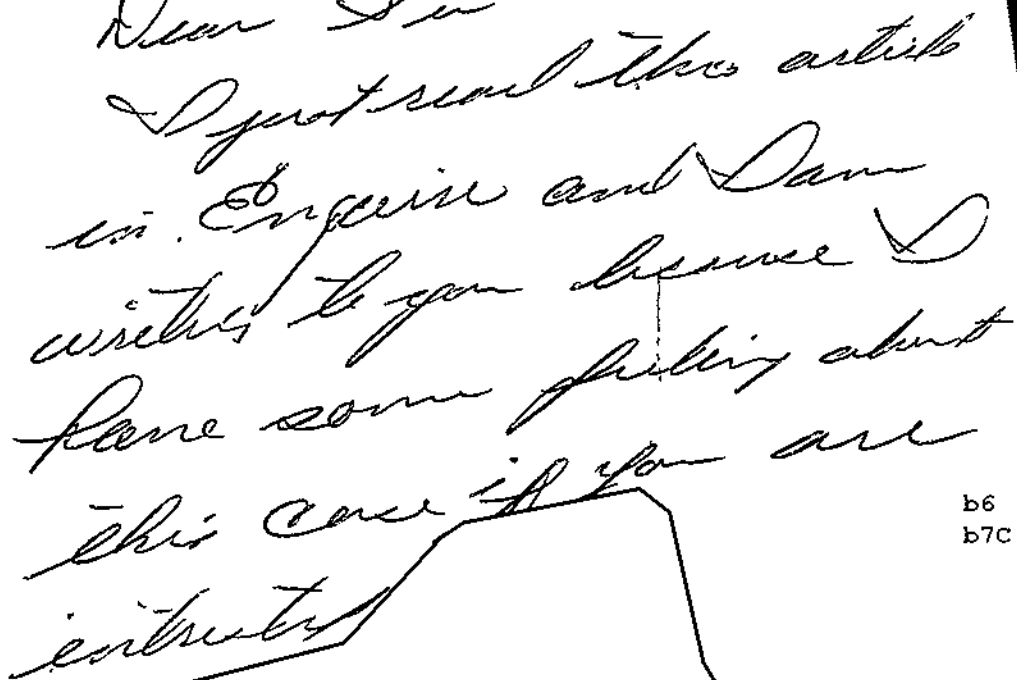 Dear Sir
I just read this article
in Enquire and I am
writing to you because I
have some feeling about
this case if you are
b6
b7C